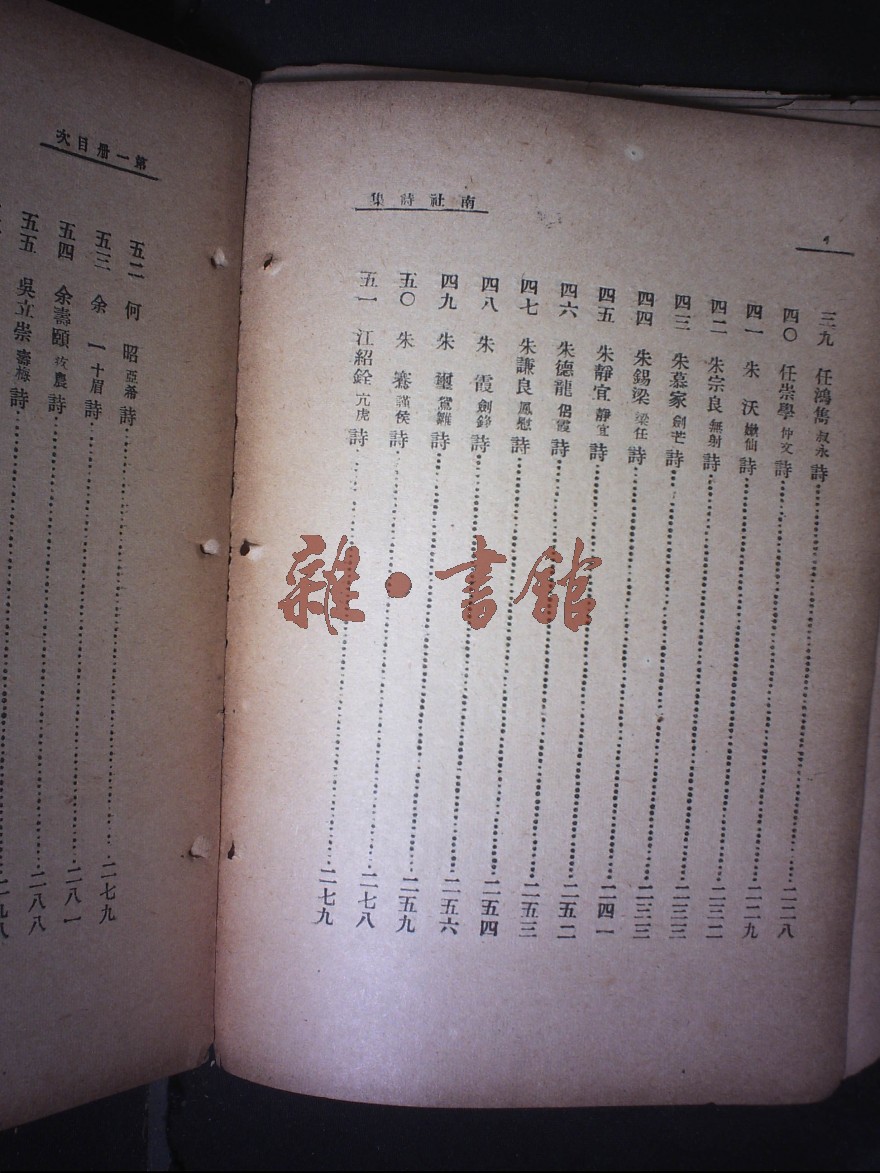 南社詩集
三九 任鴻雋 叔永 詩……二二八
四〇 任崇學 仲文 詩……二二九
四一 朱沃 仙 詩……二三二
四二 朱宗良 無射 詩……二三三
四三 朱慕家 劍芒 詩……二三三
四四 朱錫梁 梁任 詩……二四一
四五 朱靜宜 靜宜 詩……二五二
四六 朱德龍 侶霞 詩……二五三
四七 朱謙良 鳳慰 詩……二五四
四八 朱霞 劍鋒 詩……二五六
四九 朱璽 鴛雛 詩……二五九
五〇 朱騫 謹侯 詩……二七八
五一 江紹銓 亢虎 詩……二七九
第一冊目次
五二 何昭 亞希 詩……二七九
五三 余一 十眉 詩……二八一
五四 余壽頤 疚農 詩……二八八
五五 吳立崇 壽梅 詩……二九八
雜·書館